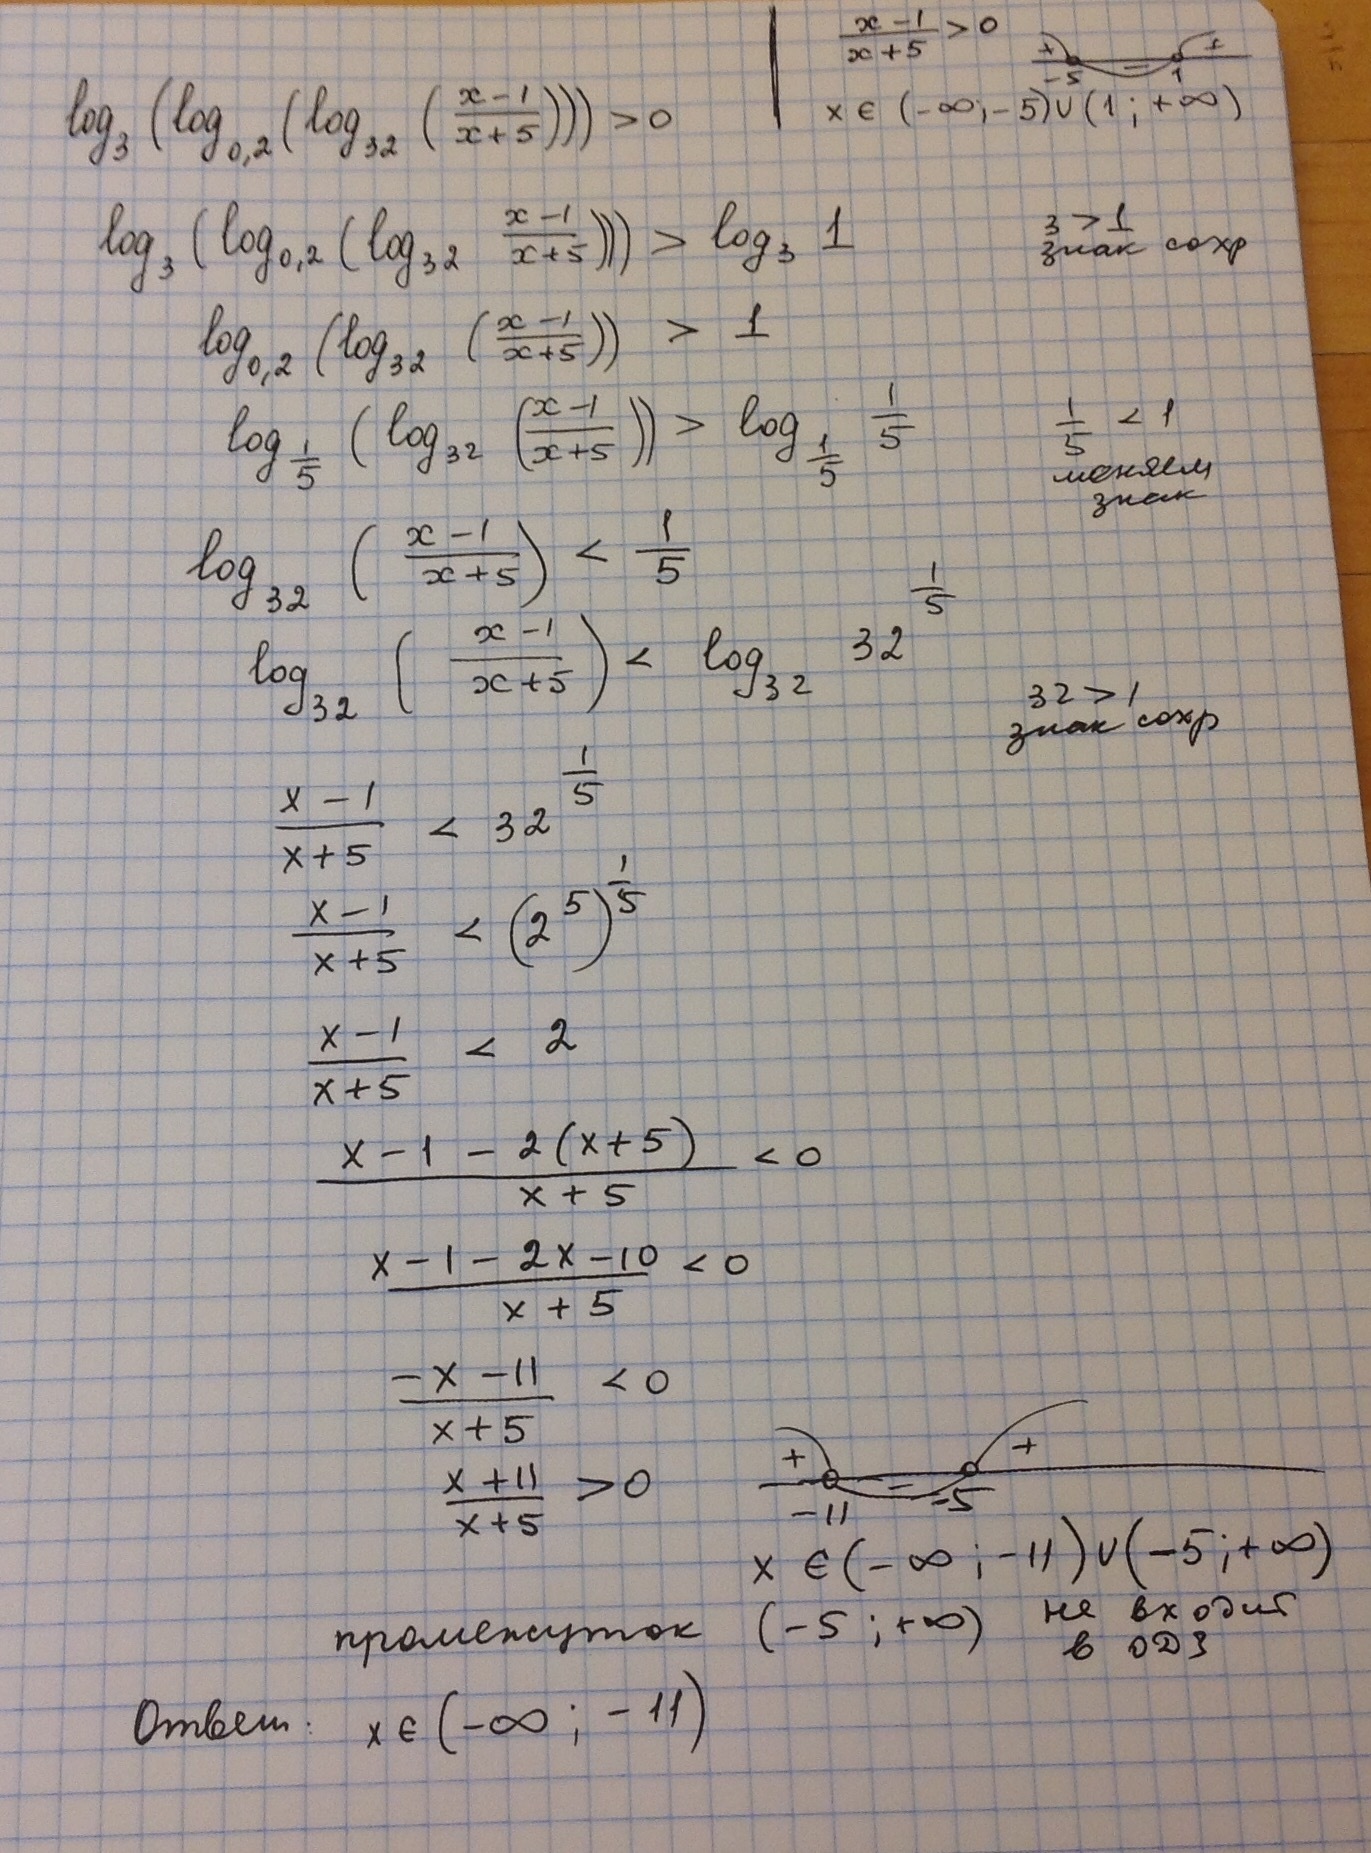 log₃(log₀,₂(log₃₂((x-1)/(x+5)))) > 0
(x-1)/(x+5) > 0
+ -5 - 1 +
x ∈ (-∞; -5) ∪ (1; +∞)
log₃(log₀,₂(log₃₂ (x-1)/(x+5))) > log₃ 1
3 > 1
знак сохр
log₀,₂(log₃₂((x-1)/(x+5))) > 1
log_(1/5)(log₃₂((x-1)/(x+5))) > log_(1/5) 1/5
1/5 < 1
меняем
знак
log₃₂((x-1)/(x+5)) < 1/5
log₃₂((x-1)/(x+5)) < log₃₂ 32^(1/5)
32 > 1
знак сохр
(x-1)/(x+5) < 32^(1/5)
(x-1)/(x+5) < (2^5)^(1/5)
(x-1)/(x+5) < 2
(x-1-2(x+5))/(x+5) < 0
(x-1-2x-10)/(x+5) < 0
(-x-11)/(x+5) < 0
(x+11)/(x+5) > 0
+ -11 - -5 +
x ∈ (-∞; -11) ∪ (-5; +∞)
промежуток (-5; +∞) не входит
в ОДЗ
Ответ: x ∈ (-∞; -11)